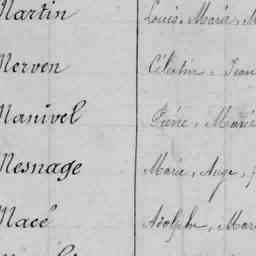 Martin Louis, Marie, M
Merven Célestin, Jean
Manivel Pierre, Marie
Mesnage Marie, Ange,
Macé Adolphe, Mar